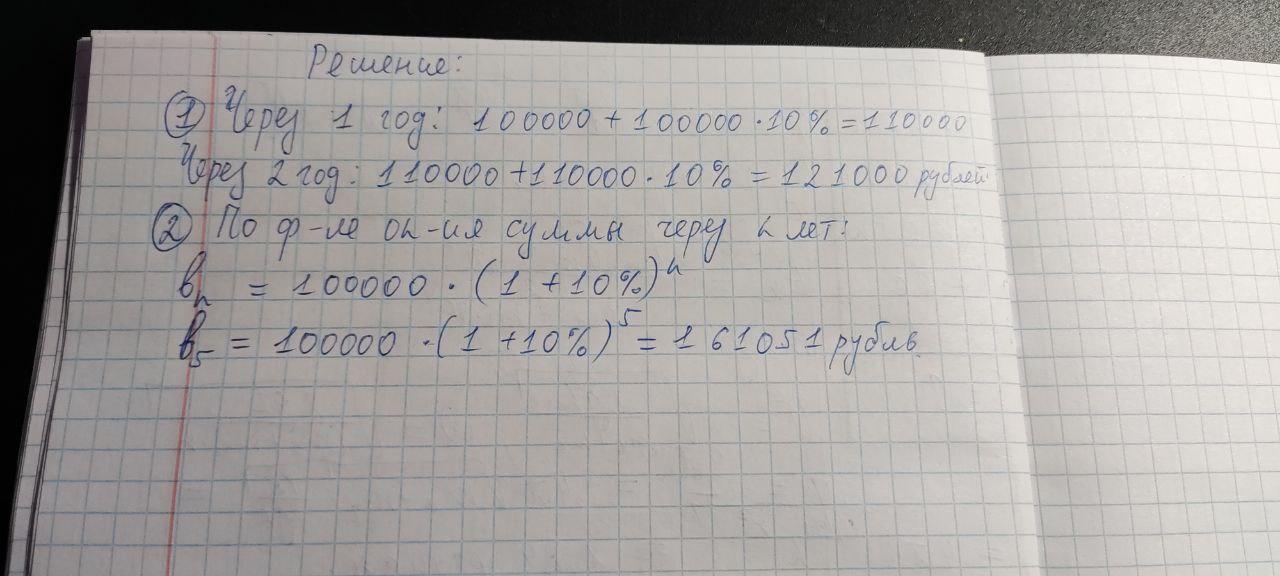 Решение:
① Через 1 год: 100000 + 100000 · 10% = 110000
Через 2 год: 110000 + 110000 · 10% = 121000 рублей
② По ф-ле ок-ия суммы через n лет:
bₙ = 100000 · (1 + 10%)ⁿ
b₅ = 100000 · (1 + 10%)⁵ = 161051 рубль.